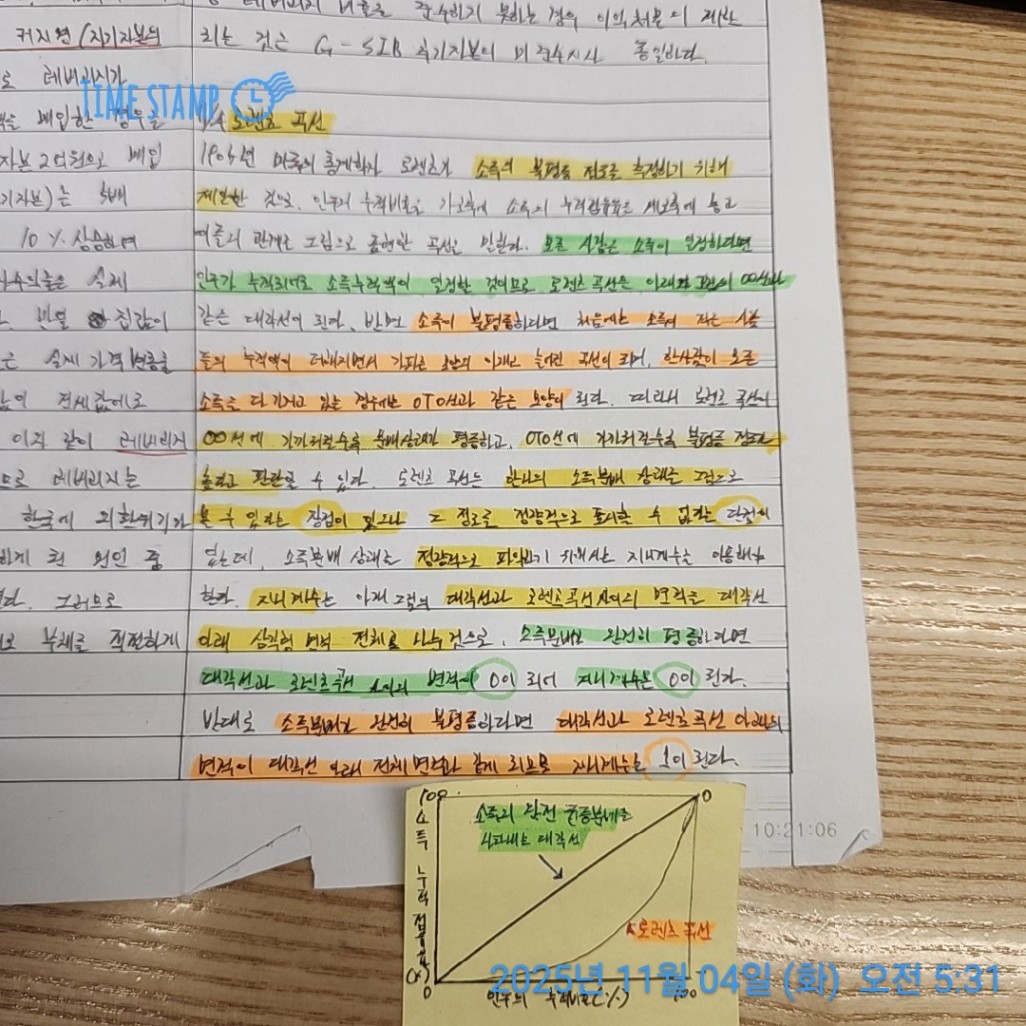 커지면 (자기자본의
로 레버리지가
매입한 경우를
자본 2억원으로 매입
기자본)는 5배
10% 상승하며
수익률은 실제
반면 집값이
은 실제 가격변동률
값이 전세값에로
이자 같이 레버리지
므로 레버리지는
한국에 외환위기가
하게 된 원인 중
그러므로
부채를 적절하게
레버리지 비율을 준수하기 못하는 경우 이익처분의 제한
되는 것은 G-SIB 추가자본의 미준수시와 동일하다.
로렌츠 곡선
1905년 미국의 통계학자 로렌츠가 소득의 불평등 정도를 측정하기 위해
제안한 것으로, 인구의 누적비율을 가로축에 소득의 누적점유율은 세로축에 놓고
이들의 관계를 그림으로 표현한 곡선을 말한다. 모든 사람은 소득이 일정하다면
인구가 누적되어도 소득누적액이 일정할 것이므로 로렌츠 곡선은 아래 그림의 OO선과
같은 대각선이 된다. 반면 소득이 불평등하다면 처음에는 소득이 적은 사람
들의 누적액이 더해지면서 기파른 늘어진 곡선이 되며, 한사람이 모든
소득을 다 가지고 있는 경우에는 OTO선과 같은 모양이 된다. 따라서 로렌츠 곡선이
OO선에 가까워질수록 분배상태가 평등하고, OTO선에 가까워질수록 불평등 정도가
크다고 판단할 수 있다. 로렌츠 곡선은 한나라의 소득분배 상태를 그림으로
볼 수 있다는 장점이 있으나 그 정도를 정량적으로 표시할 수 없다는 단점이
있는데, 소득분배 상태를 정량적으로 파악하기 위해서는 지니계수를 이용해야
한다. 지니계수는 아래 그림의 대각선과 로렌츠곡선 사이의 면적을 대각선
아래 삼각형 면적 전체로 나눈 것으로, 소득분배가 완전히 평등하다면
대각선과 로렌츠곡선 사이의 면적이 0이 되어 지니계수는 0이 된다.
반대로 소득분배가 완전히 불평등하다면 대각선과 로렌츠 곡선 아래의
면적이 대각선 아래 전체 면적과 같게 되므로 지니계수는 1이 된다.
100
O
소득의 완전 균등분배를
나타내는 대각선
소득 누적 점유율
(%)
로렌츠 곡선
0
인구의 누적비율(%)
100
TIME STAMP
10:21:06
2025년 11월 04일 (화) 오전 5:31